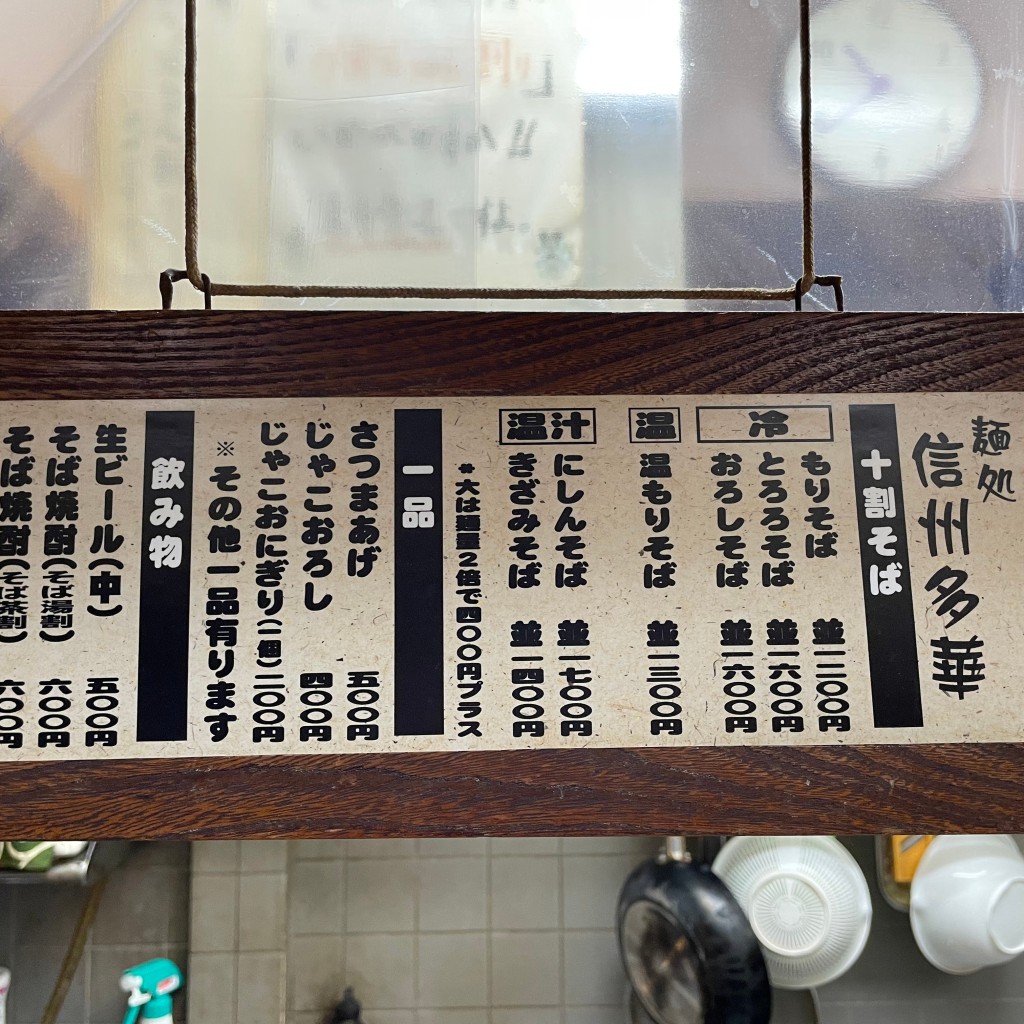 麺処
信州多華
十割そば
冷
もりそば 並一二〇〇円
とろろそば 並一六〇〇円
おろしそば 並一六〇〇円
温
温もりそば 並一三〇〇円
温汁
にしんそば 並一七〇〇円
きざみそば 並一四〇〇円
*大は麺量2倍で四〇〇円プラス
一品
さつまあげ 五〇〇円
じゃこおろし 四〇〇円
じゃこおにぎり(一個)二〇〇円
※その他一品有ります
飲み物
生ビール(中) 五〇〇円
そば焼酎(そば湯割) 六〇〇円
そば焼酎(そば茶割) 六〇〇円